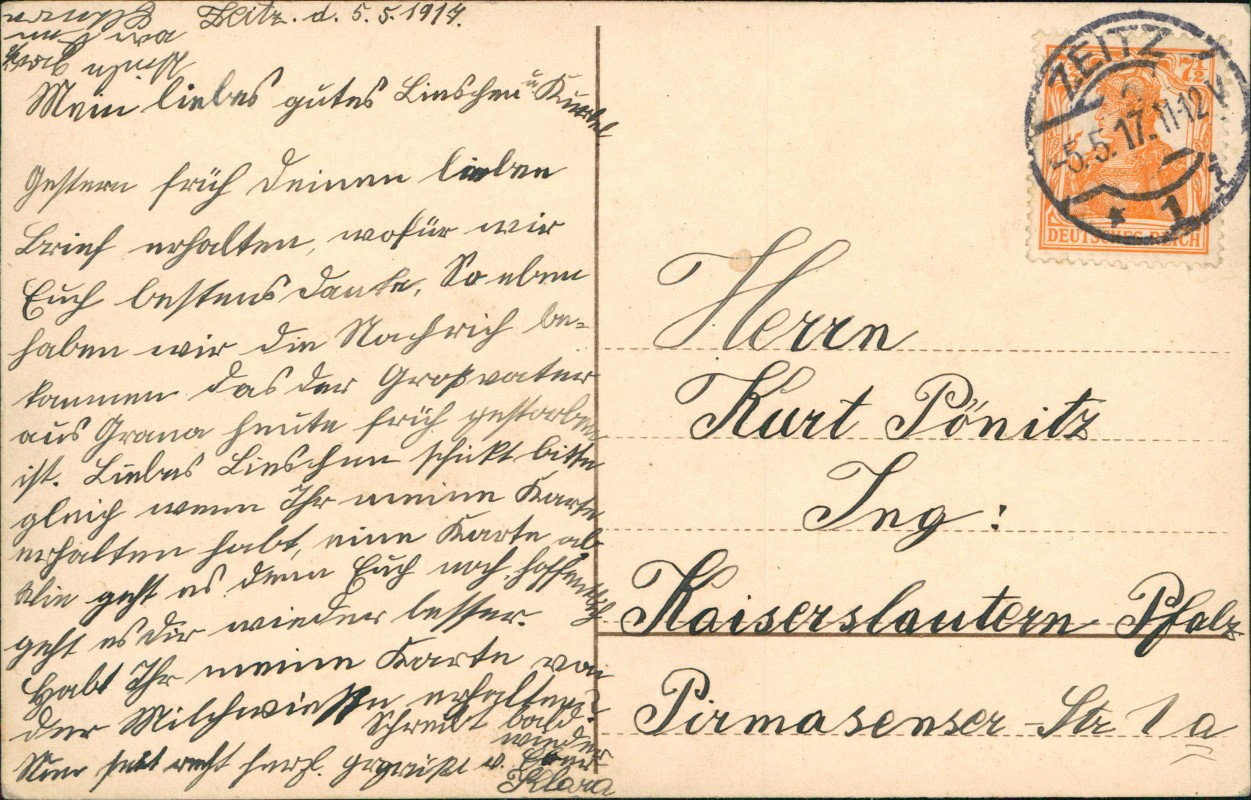 Zeitz. d. 5.5.1917.
Mein liebes gutes Lieschen u Kurtel
Gestern früh Deinen lieben
Brief erhalten, wofür wir
Euch bestens danke. So eben
haben wir die Nachrich be-
kommen das der Großvater
aus Grana heute früh gestorben
ist. Liebes Lieschen schickt bitte
gleich wenn Ihr meine Karte
erhalten habt, eine Karte ab
Wie geht es denn Euch noch hoffentlich
geht es Dir wieder besser.
Habt Ihr meine Karte von
der Milchwiese erhalten?
Schreibt bald
wieder
Nun seit recht herzl. gegrüßt v. Eurer
Klara
ZEITZ
-5.5.17.11-12V
* 1
7½
DEUTSCHES REICH
Herrn
Kurt Pönitz
Ing:
Kaiserslautern-Pfalz
Pirmasenser-Str 1a